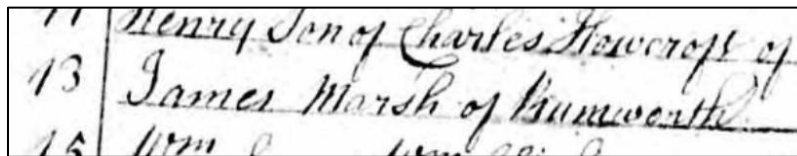 11 Henry Son of Charles Howcroft of
13 James Marsh of Rumworth
15 Wm